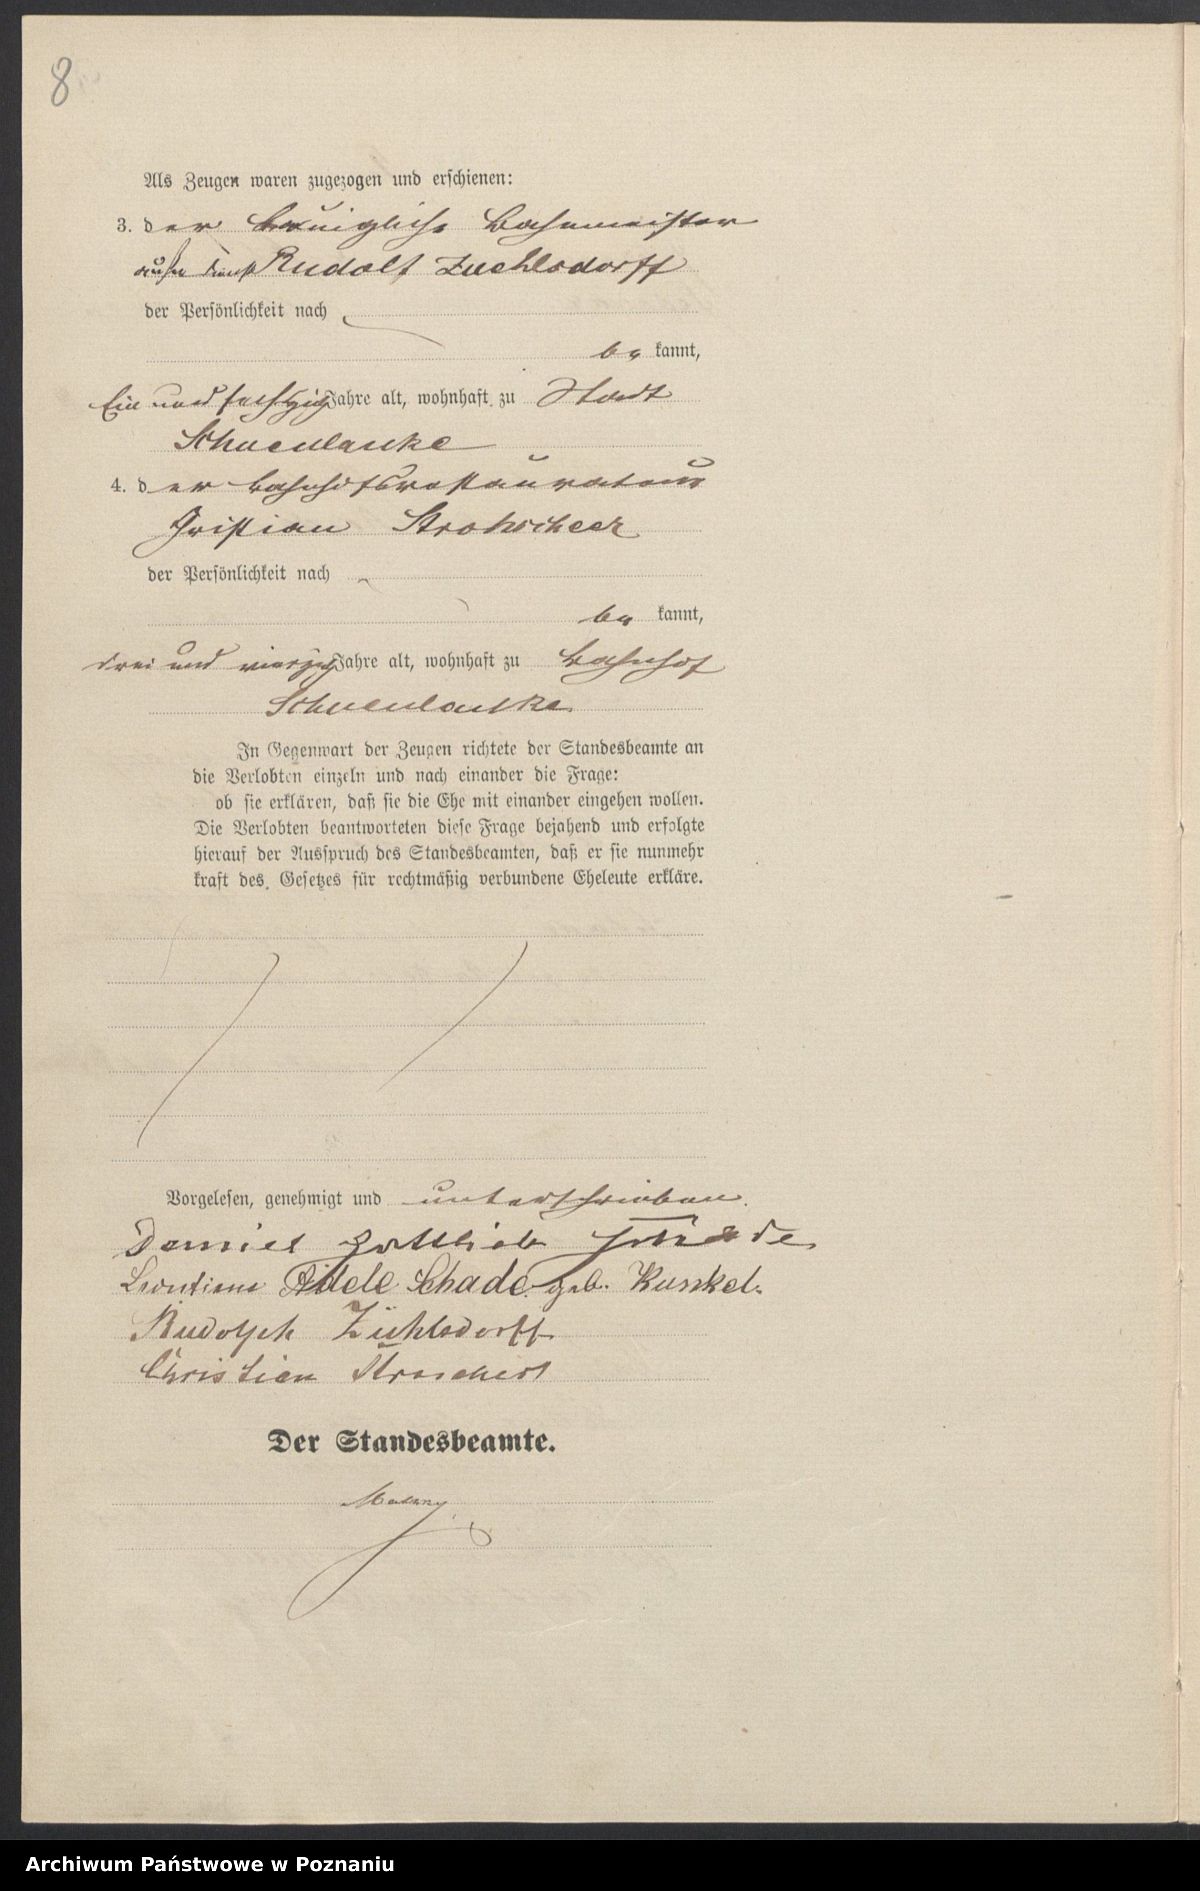 8
Als Zeugen waren zugezogen und erschienen:
3. der Königliche Bahnmeister
außer Dienst Rudolf Zuehlsdorff
der Persönlichkeit nach
be kannt,
Ein und sechzig Jahre alt, wohnhaft zu Stadt
Schoenlanke
4. der Bahnhofsrestaurateur
Christian
der Persönlichkeit nach
be kannt,
drei und vierzig Jahre alt, wohnhaft zu Bahnhof
Schoenlanke
In Gegenwart der Zeugen richtete der Standesbeamte an
die Verlobten einzeln und nach einander die Frage:
ob sie erklären, daß sie die Ehe mit einander eingehen wollen.
Die Verlobten beantworteten diese Frage bejahend und erfolgte
hierauf der Ausspruch des Standesbeamten, daß er sie nunmehr
kraft des Gesetzes für rechtmäßig verbundene Eheleute erkläre.
Vorgelesen, genehmigt und unterschrieben.
Daniel Gottlieb Schade
Leontine Adele Schade geb. Kunkel.
Rudolph Zühlsdorff
Christian
Der Standesbeamte.
Archiwum Państwowe w Poznaniu